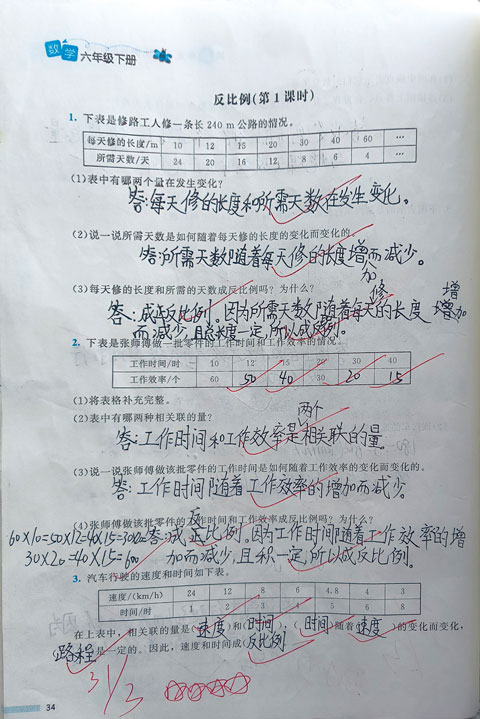 数学 六年级下册
反比例(第1课时)
1. 下表是修路工人修一条长 240 m 公路的情况。
每天修的长度/m 10 12 15 20 30 40 60 …
所需天数/天 24 20 16 12 8 6 4 …
(1)表中有哪两个量在发生变化?
答:每天修的长度和所需天数在发生变化。
(2)说一说所需天数是如何随着每天修的长度的变化而变化的。
答:所需天数随着每天修的长度增加而减少。
(3)每天修的长度和所需的天数成反比例吗?为什么?
答:成反比例。因为所需天数随着每天修的长度增加
而减少,且总长度一定,所以成反比例。
2. 下表是张师傅做一批零件的工作时间和工作效率的情况。
工作时间/时 10 12 15 20 30 40
工作效率/个 60 50 40 30 20 15
(1)将表格补充完整。
(2)表中有哪两种相关联的量?
答:工作时间和工作效率是两个相关联的量。
(3)说一说张师傅做该批零件的工作时间是如何随着工作效率的变化而变化的。
答:工作时间随着工作效率的增加而减少。
(4)张师傅做该批零件的工作时间和工作效率成反比例吗?为什么?
60×10=50×12=40×15=30×20 答:成反比例。因为工作时间随着工作效率的增
30×20=40×15=600 加而减少,且积一定,所以成反比例。
3. 汽车行驶的速度和时间如下表。
速度/(km/h) 24 12 8 6 4.8 4 3
时间/时 1 2 3 4 5 6 8
在上表中,相关联的量是(速度)和(时间),(时间)随着(速度)的变化而变化,
(路程)是一定的。因此,速度和时间成(反比例)
34